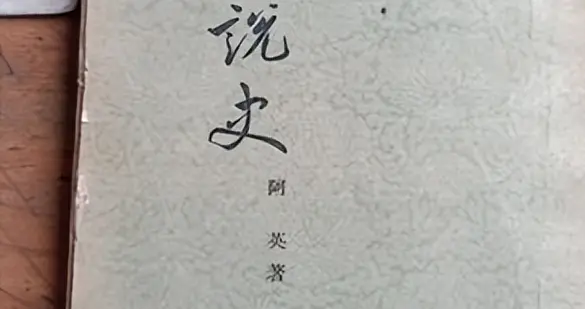 說史
阿英著